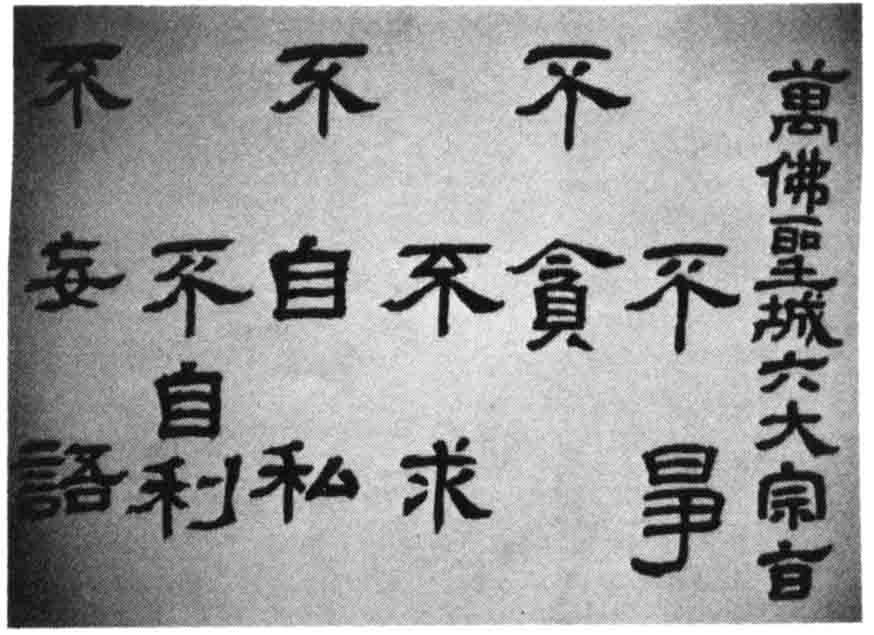 萬佛聖城六大宗旨
不爭
不貪
不求
不自私
不自利
不妄語